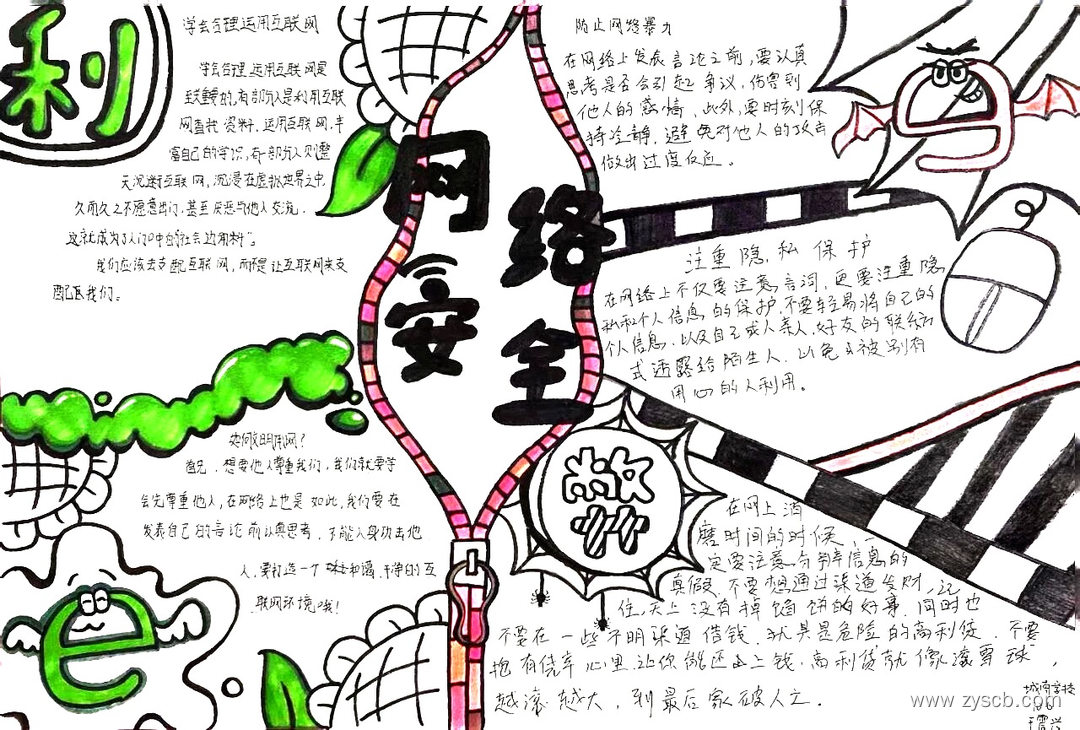 利
学会合理运用互联网
学会合理运用互联网是
至关重要的,有部分人是利用互联
网查找资料,运用互联网,丰
富自己的学识,有部分人则整
天沉迷互联网,沉浸在虚拟世界之中,
久而久之不愿意出门,甚至厌恶与他人交流,
这就成为了人们口中的"社会边角料"。
我们应该去支配互联网,而不是让互联网来支
配我们。
如何文明用网?
首先,想要他人尊重我们,我们就要学
会先尊重他人,在网络上也是如此,我们要在
发表自己的言论前认真思考,不能人身攻击他
人,要打造一个 和谐,干净的互
联网环境哦!
网络
安全
防止网络暴力
在网络上发表言论之前,要认真
思考是否会引起争议,伤害到
他人的感情,此外,要时刻保
持冷静,避免对他人的攻击
做出过度反应。
注重隐私保护
在网络上不仅要注意言词,更要注重隐
私和个人信息的保护,不要轻易将自己的
个人信息,以及自己或人亲人,好友的联络方
式透露给陌生人,以免被别有
用心的人利用。
弊
在网上消
磨时间的时候,一
定要注意分辨信息的
真假,不要想通过渠道发财,记
住,天上没有掉馅饼的好事,同时也
不要在一些不明渠道借钱,尤其是危险的高利贷,不要
抱有侥幸心里,让你能还上钱,高利贷就像滚雪球,
越滚越大,到最后家破人亡.
城南学校
www.zyscb.com